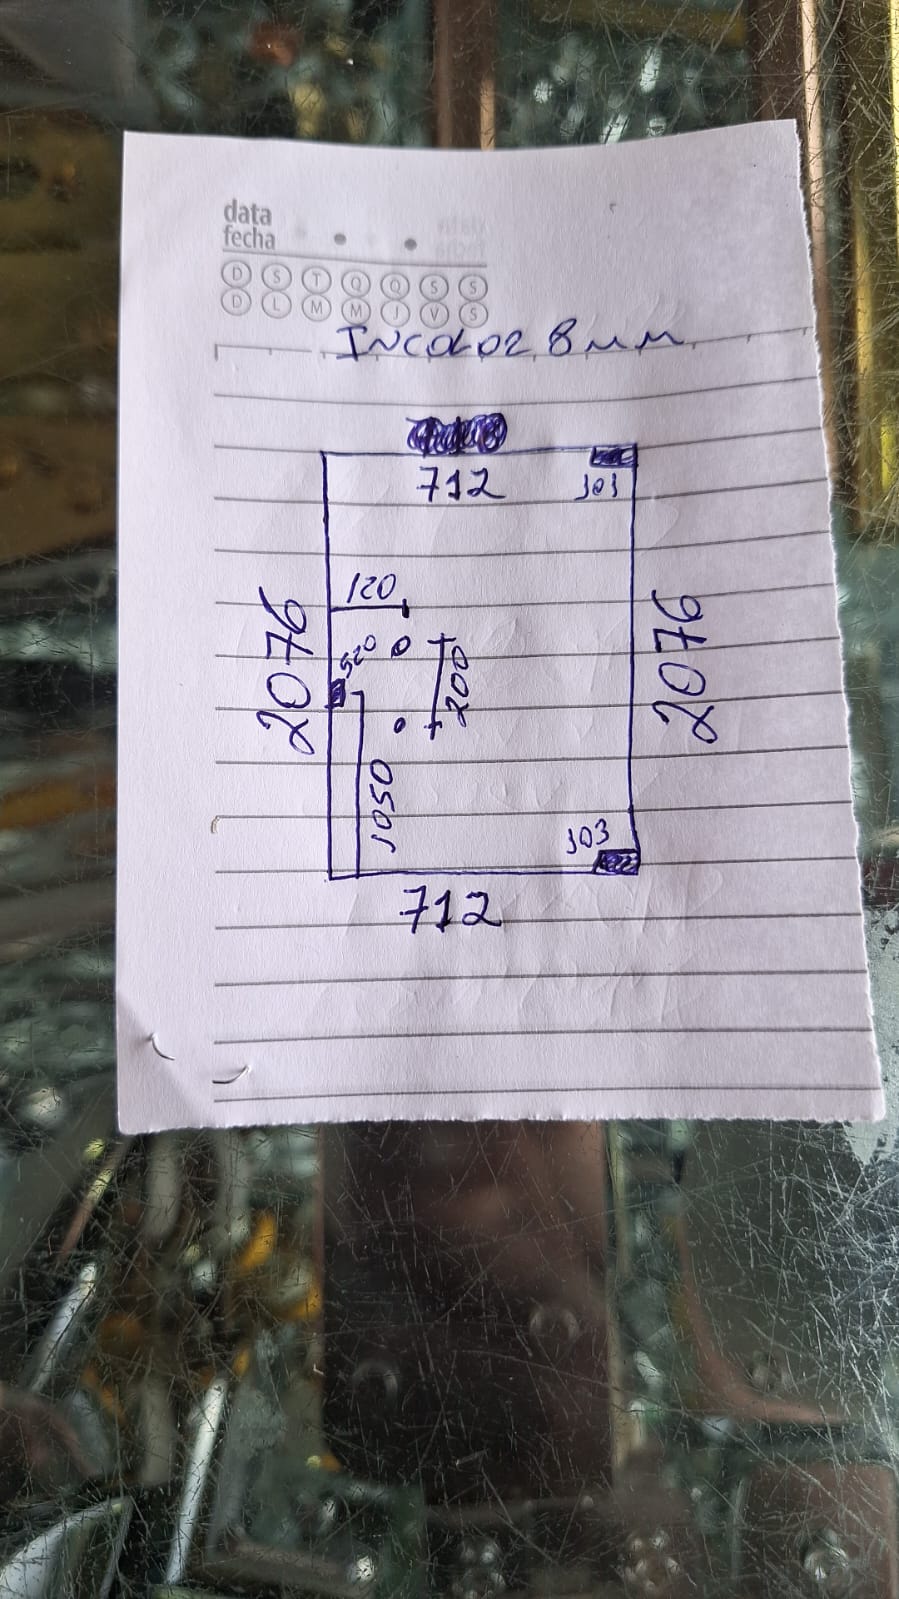 data
fecha
D S T Q Q S S
D L M M J V S
INCOLOR 8mm
712
101
120
2076
520
200
2076
1050
103
712